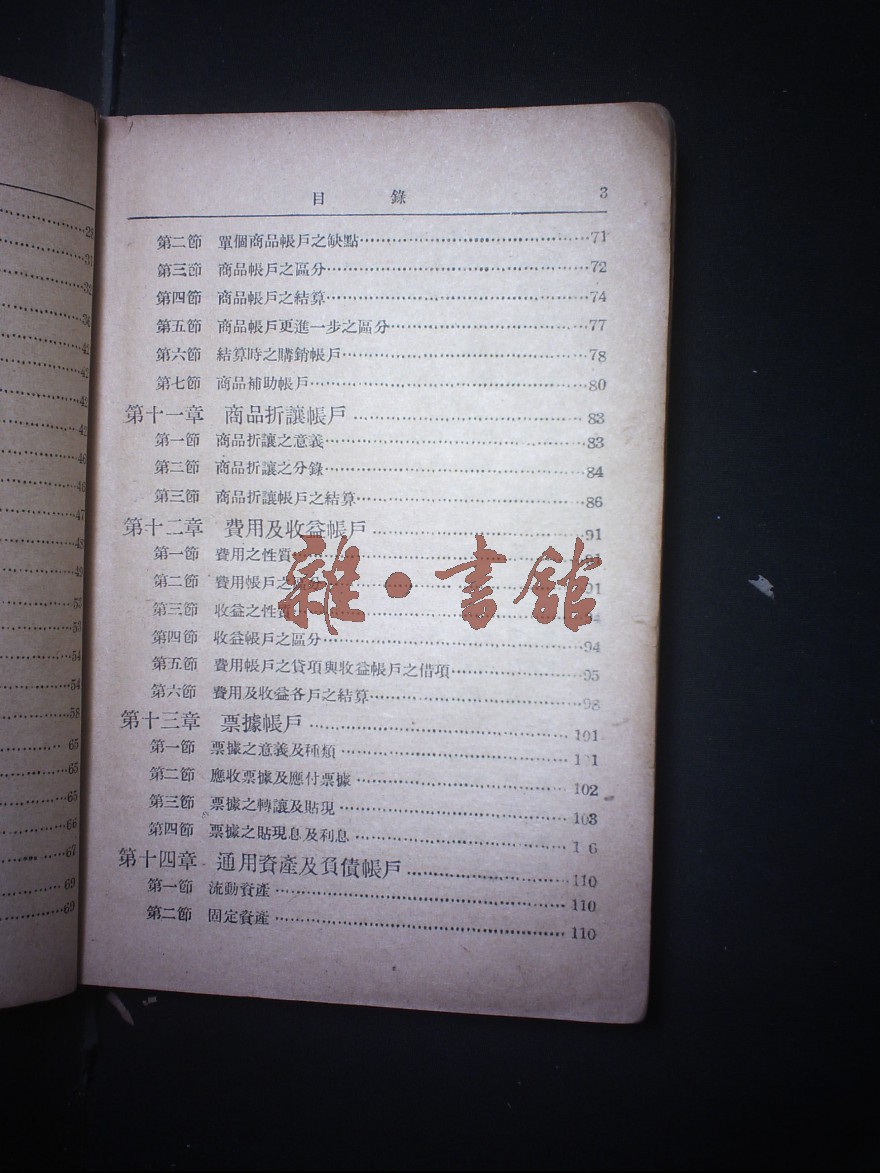 目 錄 3
第二節 單個商品帳戶之缺點 71
第三節 商品帳戶之區分 72
第四節 商品帳戶之結算 74
第五節 商品帳戶更進一步之區分 77
第六節 結算時之購銷帳戶 78
第七節 商品補助帳戶 80
第十一章 商品折讓帳戶 83
第一節 商品折讓之意義 83
第二節 商品折讓之分錄 84
第三節 商品折讓帳戶之結算 86
第十二章 費用及收益帳戶 91
第一節 費用之性質 91
第二節 費用帳戶之區分 91
第三節 收益之性質 94
第四節 收益帳戶之區分 94
第五節 費用帳戶之貸項與收益帳戶之借項 95
第六節 費用及收益各戶之結算 98
第十三章 票據帳戶 101
第一節 票據之意義及種類 1 1
第二節 應收票據及應付票據 102
第三節 票據之轉讓及貼現 103
第四節 票據之貼現息及利息 1 6
第十四章 通用資產及負債帳戶 110
第一節 流動資產 110
第二節 固定資產 110
雜·書館